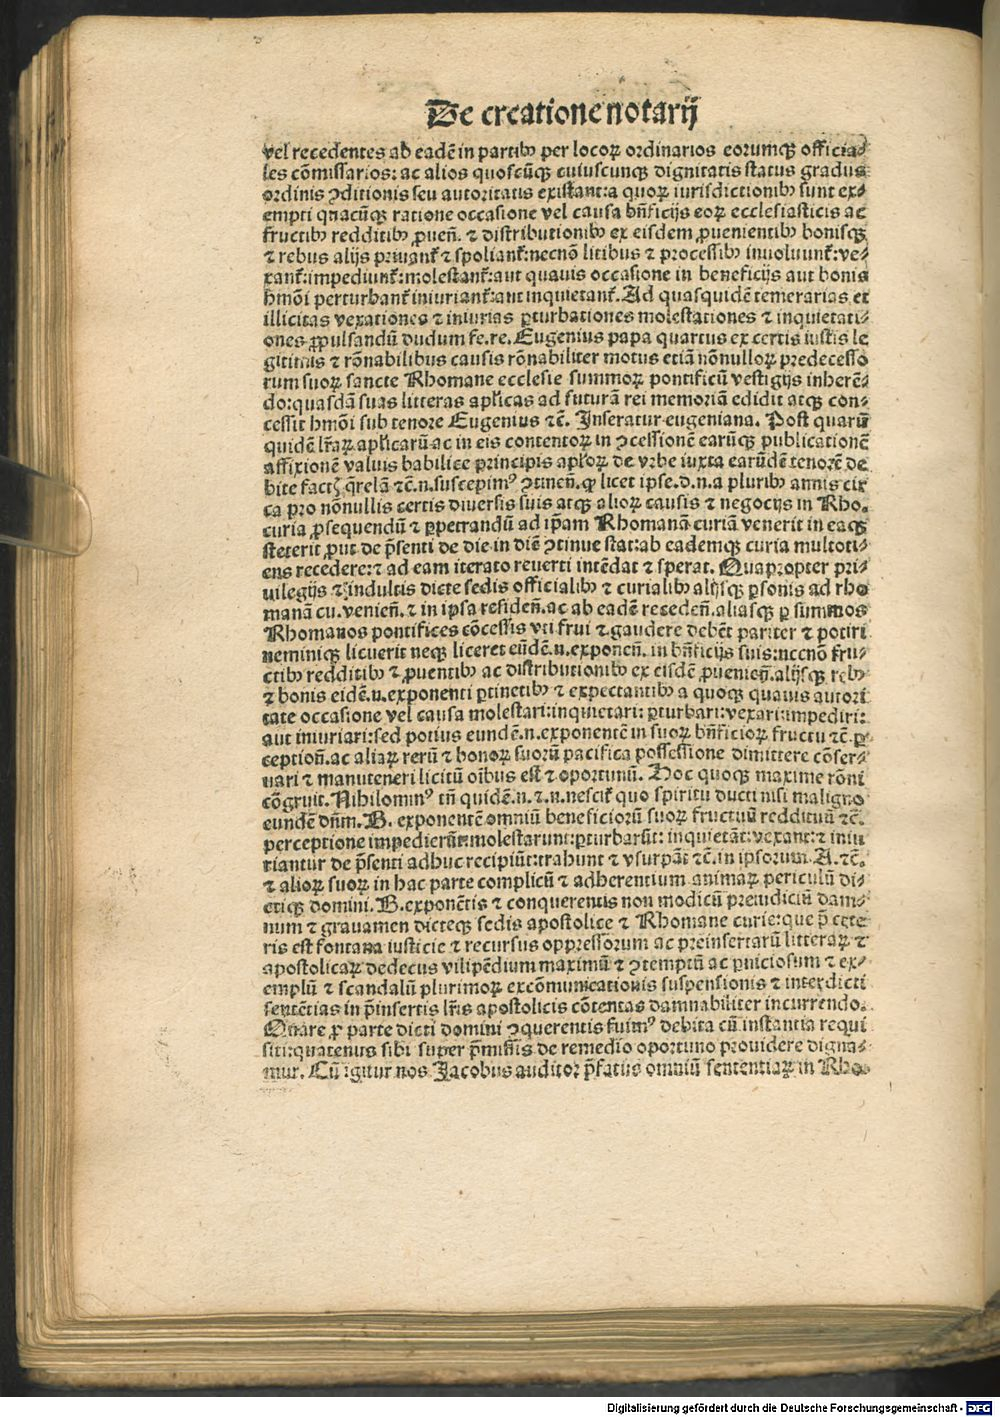 De creatione notarij
vel recedentes ab eadē in partibꝰ per locoꝝ ordinarios eorumqꝫ officia⸗
les cōmissarios: ac alios quoscūqꝫ cuiuscunqꝫ dignitatis status gradus
ordinis ꝯditionis seu autoritatis existant: a quoꝝ iurisdictionibꝰ sunt ex⸗
empti quacūqꝫ ratione occasione vel causa bn̄ficijs eoꝝ ecclesiasticis ac
fructibꝰ redditibꝰ ꝓuen̄. ⁊ distributionibꝰ ex eisdem ꝓuenientibꝰ bonisqꝫ
⁊ rebus alijs priuant᷑ ⁊ spoliant᷑: necnō litibus ⁊ processibꝰ inuoluunt᷑: ve⸗
xant᷑: impediunt᷑: molestant᷑: aut quauis occasione in beneficijs aut bonis
hmōi perturbant᷑ iniuriant᷑: aut inquietant᷑. Ad quasquidē temerarias et
illicitas vexationes ⁊ iniurias ꝑturbationes molestationes ⁊ inquietati⸗
ones ꝓpulsandū dudum fe. re. Eugenius papa quartus ex certis iustis le
gitimis ⁊ rōnabilibus causis rōnabiliter motus etiā nōnulloꝝ predecesso
rum suoꝝ sancte Rhomane ecclesie summoꝝ pontificū vestigijs inherē⸗
do: quasdā suas litteras apl̄icas ad futurā rei memoriā edidit atqꝫ con⸗
cessit hmōi sub tenore Eugenius ⁊c̄. Inseratur eugeniana. Post quarū
quidē lr̄aꝝ apl̄icarū ac in eis contentoꝝ in ꝯcessionē earūqꝫ publicationē
affixionē valuis basilice principis apl̄oꝝ de vrbe iuxta earūdē tenorē de
bite fact̄ q̄relā ⁊c̄. n. suscepimꝰ ꝯtinen̄. ꝙ licet ipse. d. n. a pluribꝰ annis cir
ca pro nōnullis certis diuersis suis atqꝫ alioꝝ causis ⁊ negocijs in Rho.
curia ꝓsequendū ⁊ ꝑpetrandū ad ip̄am Rhomanā curiā venerit in eaqꝫ
steterit ꝓut de p̄senti de die in diē ꝯtinue stat: ab eademqꝫ curia multoti⸗
ens recedere: ⁊ ad eam iterato reuerti intēdat ⁊ sperat. Quapropter pri⸗
uilegijs ⁊ indultis dicte sedis officialibꝰ ⁊ curialibꝰ alijsqꝫ ꝑsonis ad rho
manā cu. venien̄. ⁊ in ipsa residen̄. ac ab eadē receden̄. aliasqꝫ ꝑ summos
Rhomanos pontifices cōcessis vti frui ⁊ gaudere debēt pariter ⁊ potiri
neminiqꝫ licuerit neqꝫ liceret eūdē. n. exponen̄. in bn̄ficijs suis: necnō fru⸗
ctibꝰ redditibꝰ ⁊ ꝓuentibꝰ ac distributionibꝰ ex eisdē ꝓuenien̄. alijsqꝫ rebꝰ
⁊ bonis eidē. n. exponenti ꝑtinētibꝰ ⁊ expectantibꝰ a quoqꝫ quauis autori
tate occasione vel causa molestari: inquietari: ꝑturbari: vexari: impediri:
aut iniuriari: sed potius eundē. n. exponentē in suoꝝ bn̄ficioꝝ fructu ⁊c̄. ꝑ
ception̄. ac aliaꝝ rerū ⁊ bonoꝝ suorū pacifica possessione dimittere cōser⸗
uari ⁊ manuteneri licitū oībus est ⁊ oportunū. Hoc quoqꝫ maxime rōni
cōgruit. Nihilominꝰ tn̄ quidē. n. ⁊. n. nescit᷑ quo spiritu ducti nisi maligno
eundē dn̄m. B. exponentē omniū beneficiorū suoꝝ fructuū reddituū ⁊c̄.
perceptione impedierūt: molestarunt: ꝑturbarūt: inquietāt: vexant: ⁊ iniu
riantur de p̄senti adhuc recipiūt: trahunt ⁊ vsurpāt ⁊c̄. in ipsorum. A. ⁊c̄.
⁊ alioꝝ suoꝝ in hac parte complicū ⁊ adherentium animaꝝ periculū di⸗
ctiqꝫ domini. B. exponētis ⁊ conquerentis non modicū preiudiciū dam⸗
num ⁊ grauamen dicteqꝫ sedis apostolice ⁊ Rhomane curie: que p̄ cete
ris est fontana iusticie ⁊ recursus oppressorum ac preinsertarū litteraꝝ ⁊
apostolicaꝝ dedecus vilipēdium maximū ⁊ ꝯtemptū ac ꝑniciosum ⁊ ex⸗
emplū ⁊ scandalū plurimoꝝ excōmunicationis suspensionis ⁊ interdicti
sentētias in p̄insertis lr̄is apostolicis cōtentas damnabiliter incurrendo.
Quare ꝓ parte dicti domini ꝯquerentis fuimꝰ debita cū instantia requi
siti: quatenus sibi super p̄missis de remedio oportuno prouidere digna⸗
mur. Cū igitur nos Jacobus auditor p̄fatus omniū sententiaꝝ in Rho⸗
Digitalisierung gefördert durch die Deutsche Forschungsgemeinschaft - DFG